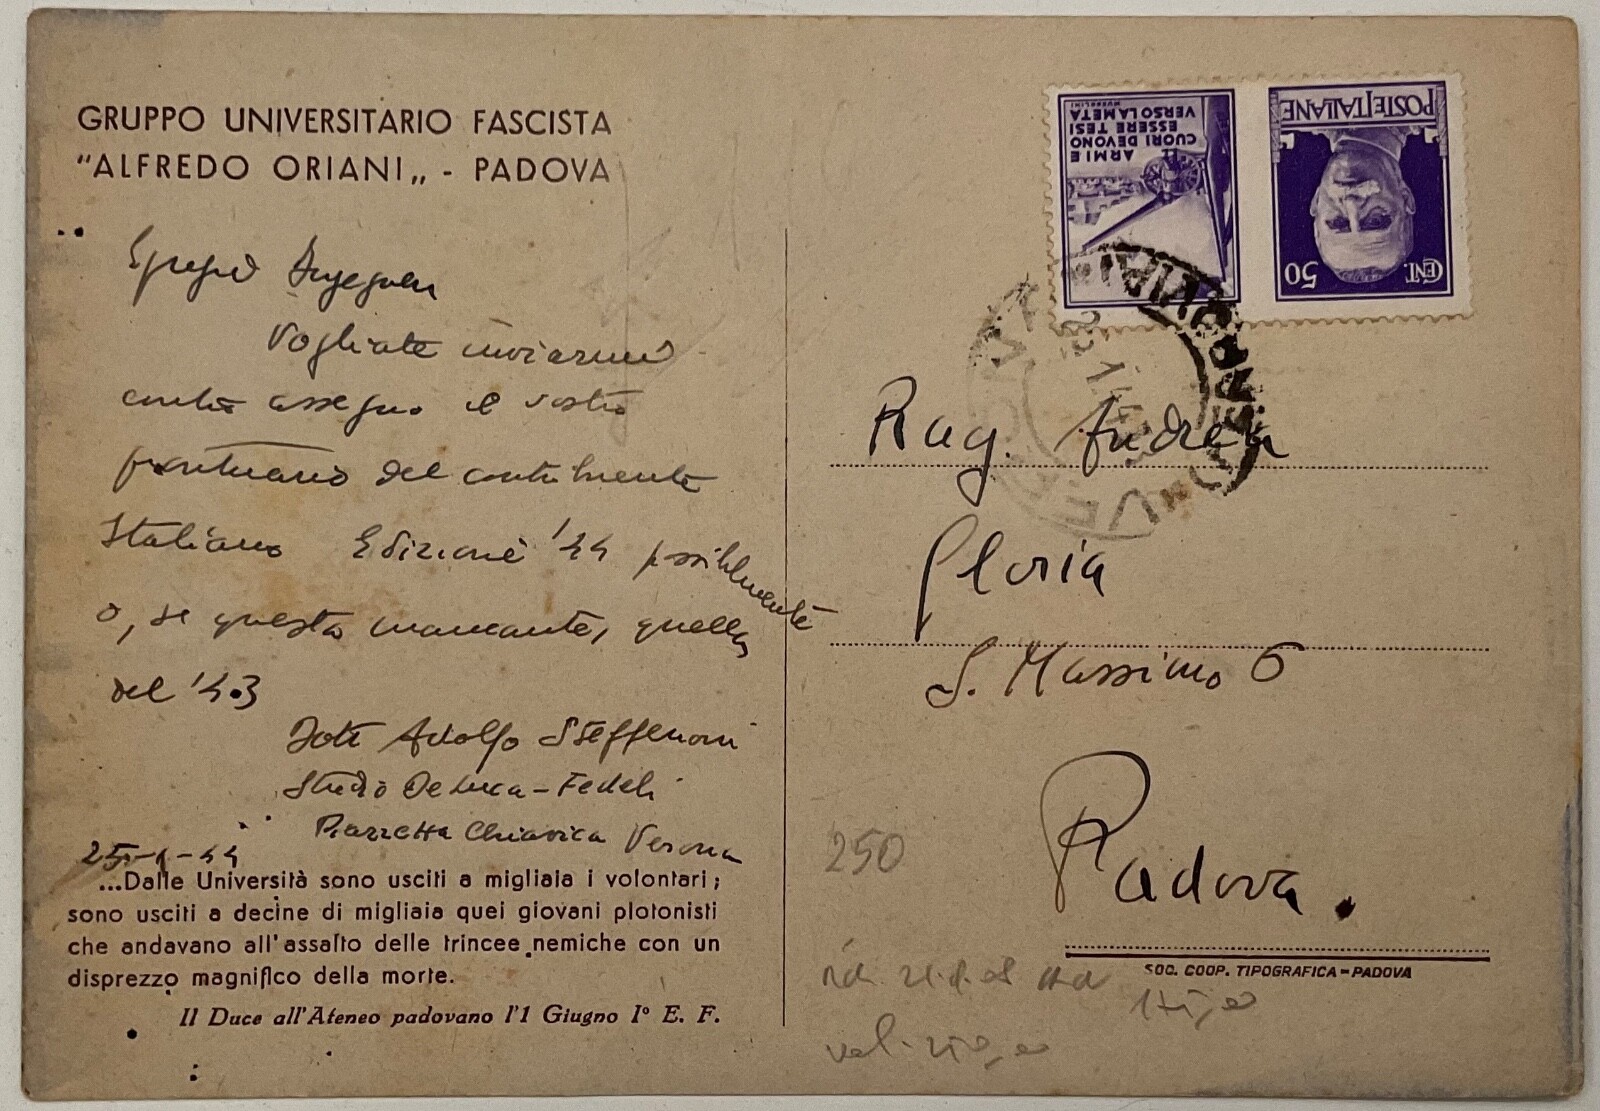 GRUPPO UNIVERSITARIO FASCISTA
"ALFREDO ORIANI„ - PADOVA
Egregio Ingegner
Vogliate inviarmi
contro assegno il vostro
prontuario del contribuente
Italiano Edizione '44 possibilmente
o, se questa mancante, quella
del '43
Dott Adolfo Steffenoni
Studio De Luca - Fedeli
Piazzetta Chiavica Verona
25-1-44
...Dalle Università sono usciti a migliaia i volontari;
sono usciti a decine di migliaia quei giovani plotonisti
che andavano all'assalto delle trincee nemiche con un
disprezzo magnifico della morte.
Il Duce all'Ateneo padovano l'1 Giugno I° E. F.
ARMI E
CUORI DEVONO
ESSERE TESI
VERSO LA META
MUSSOLINI
POSTE ITALIANE
CENT. 50
Rag. Andrea
Gloria
S. Massimo 6
Padova.
SOC. COOP. TIPOGRAFICA - PADOVA
250